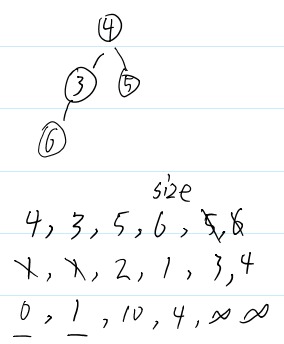 4
3 5
6
size
4, 3, 5, 6, 5, 6
1, 1, 2, 1, 3, 4
0, 1, 10, 4, ∞ ∞